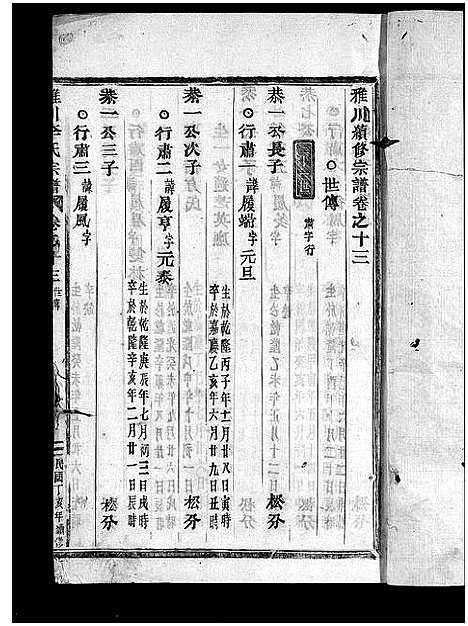 雅川續修宗譜卷之十三
世傳
肅字行
恭一公長子
行肅一 諱履端 字元旦
生於乾隆丙子年十一月廿八日寅時
卒於嘉慶乙亥年六月廿九日丑時
松芬
恭一公次子
行肅二 諱履亨 字元泰
生於乾隆庚辰年七月初三日戌時
卒於乾隆辛亥年二月廿一日辰時
松芬
恭二公三子
行肅三 諱履風 字
雅川李氏宗譜
卷之十三 世傳
一
民國丁亥年續修